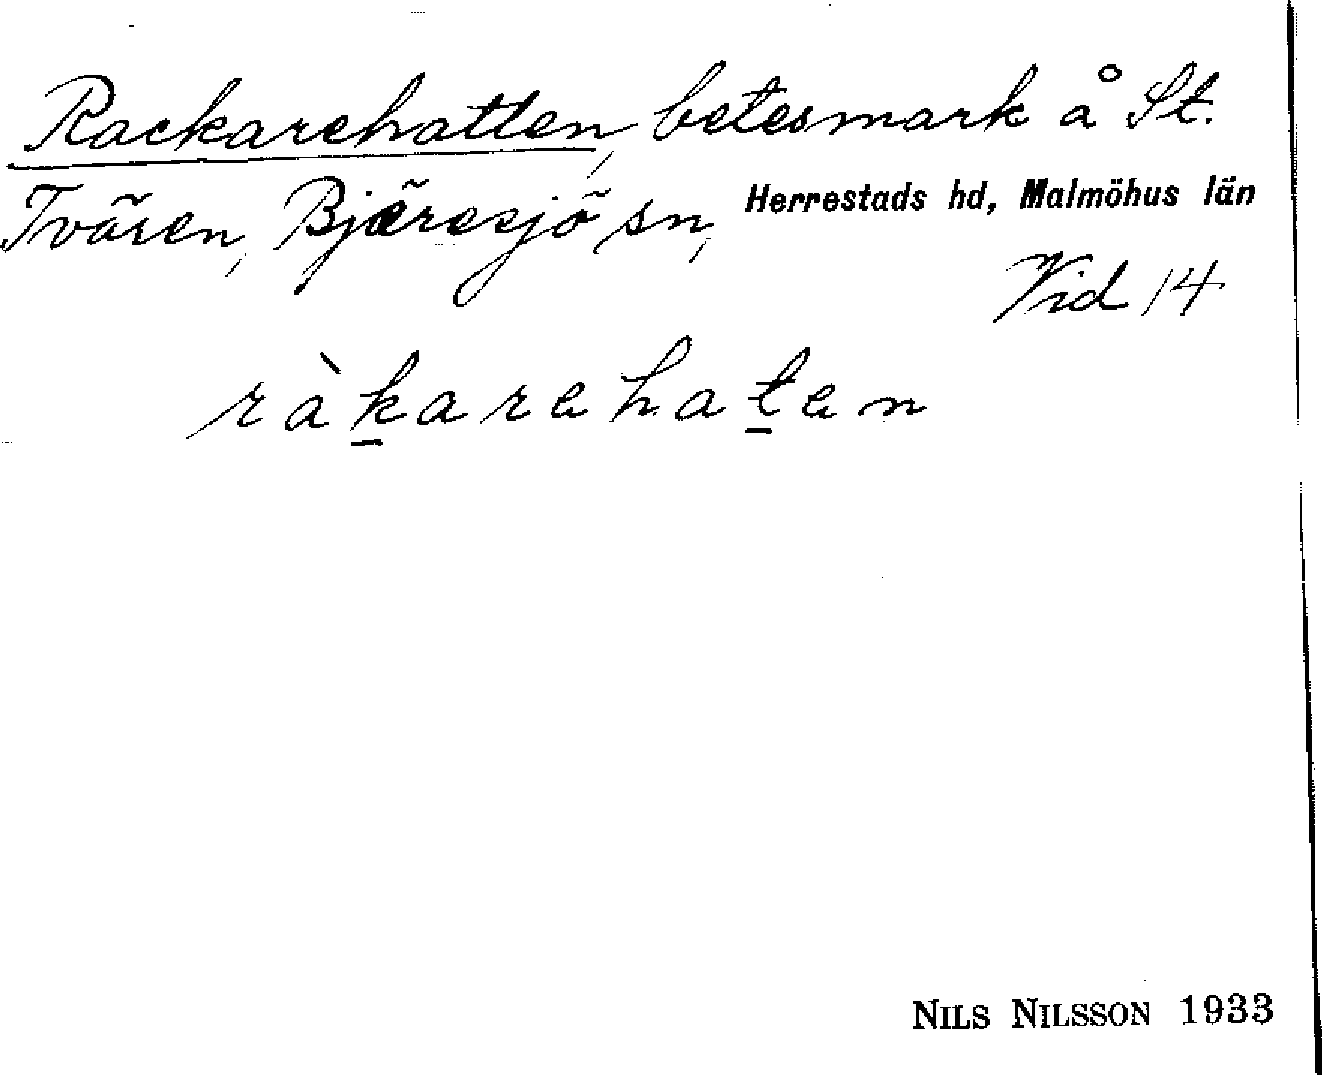 Rackarehatten, betesmark å St.
Tvären, Bjäresjö sn, Herrestads hd, Malmöhus län
Vid 14
ràk̲arehat̲en
NILS NILSSON 1933